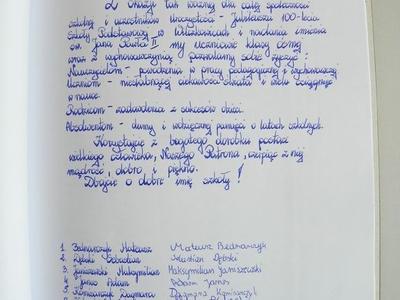 Z okazji tak ważnej dla całej społeczności
szkolnej i uczestników uroczystości - Jubileuszu 100-lecia
Szkoły Podstawowej w i nadania imienia
św. Jana Pawła II my uczniowie klasy ósmej
wraz z wychowawczynią pozwalamy sobie życzyć:
Nauczycielom - powodzenia w pracy pedagogicznej i wychowawczej
Uczniom - niesłabnącej ciekawości świata i wielu osiągnięć
w nauce.
Rodzicom - zadowolenia z sukcesów dzieci.
Absolwentom - dumy i wdzięcznej pamięci o latach szkolnych.
Korzystajcie z bogatego dorobku
wielkiego człowieka, Naszego Patrona, czerpiąc z niej
mądrość, dobro i piękno.
Dbajcie o dobre imię szkoły!
1. Bednarczyk Mateusz Mateusz Bednarczyk
2. Dębski Sebastian Sebastian Dębski
3. Janiszewski Maksymilian Maksymilian Janiszewski
4. Janus Adam Adam Janus
5. Dagmara Dagmara